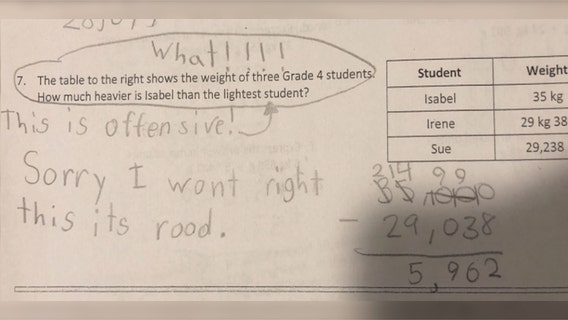 What!!!!
7. The table to the right shows the weight of three Grade 4 students.
How much heavier is Isabel than the lightest student?
This is offensive!
Sorry I wont right
this its rood.
Student Weight
Isabel 35 kg
Irene 29 kg 38
Sue 29,238
- 29,038
5,962